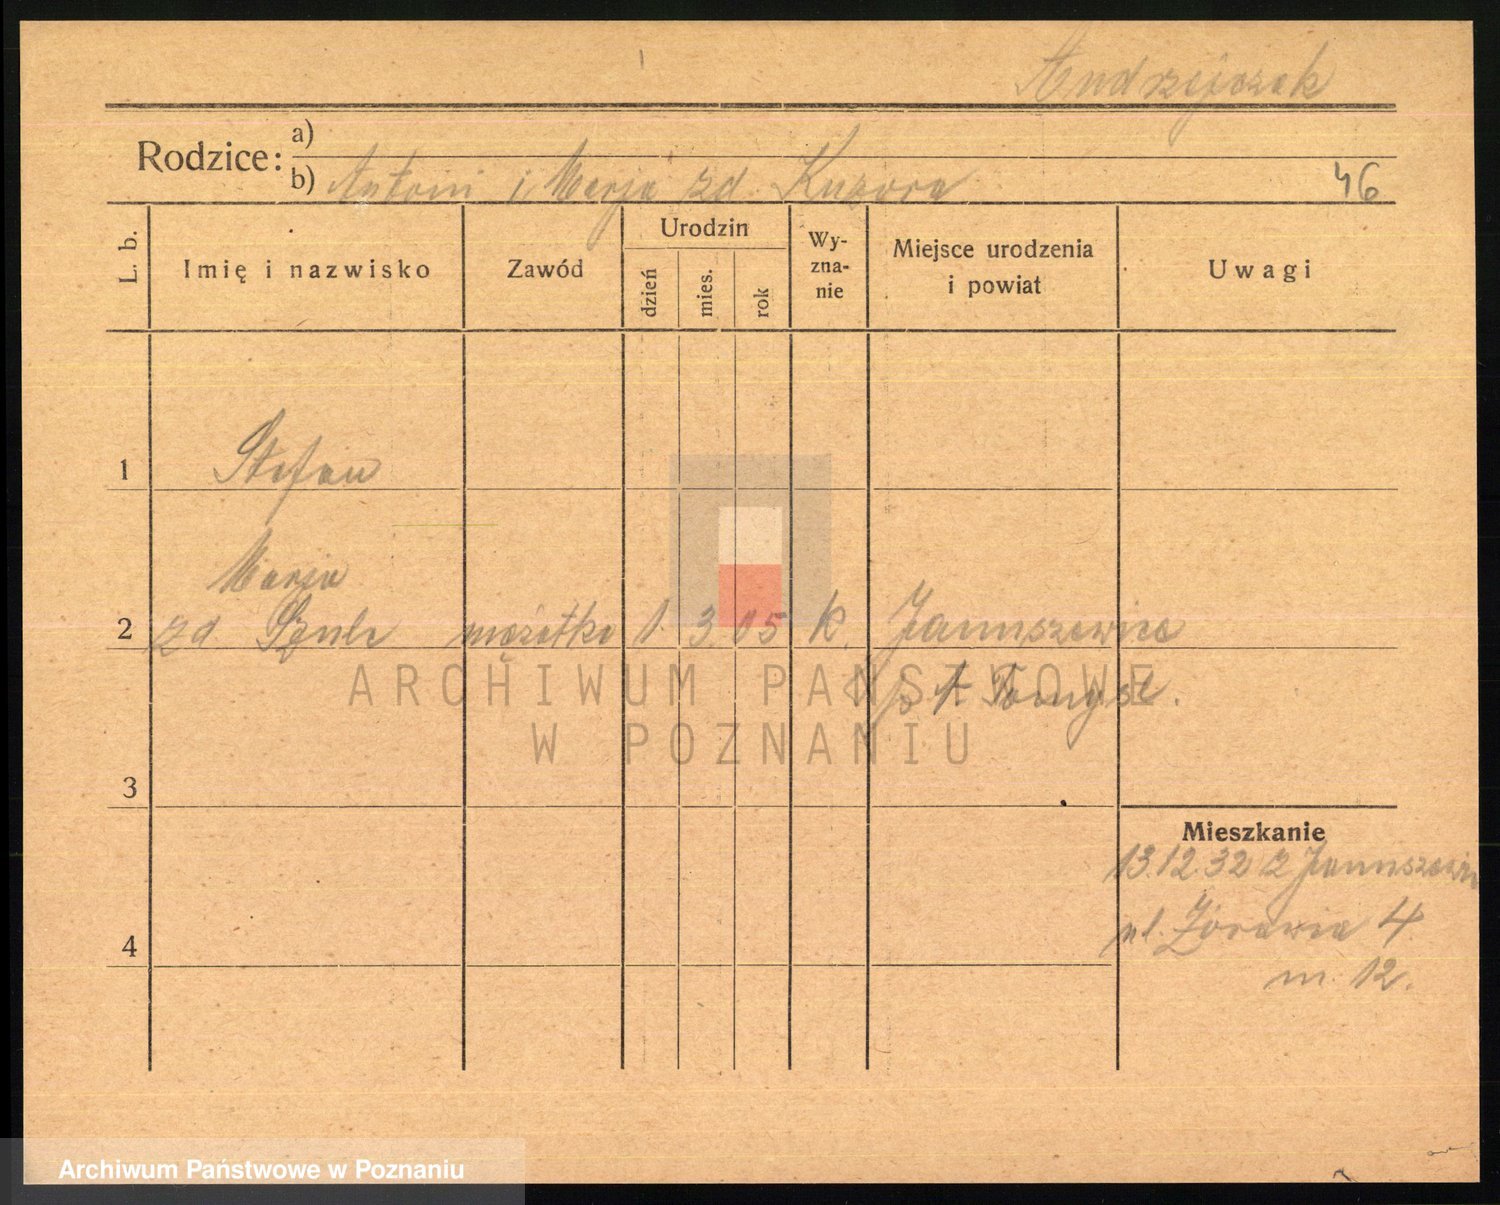 Andrzejczak
Rodzice: a)
b) Antoni i Marja zd. Kuzora
46
L. b.
Imię i nazwisko
Zawód
Urodzin
dzień
mies.
rok
Wy-
zna-
nie
Miejsce urodzenia
i powiat
Uwagi
1 Stefan
Marja
2 zd Szulc mężatka 1. 3. 05 k. Januszewice
p. N. Tomyśl.
ARCHIWUM PAŃSTWOWE
W POZNANIU
3
Mieszkanie
13.12.32 z Januszewic
4 ul. Żórawia 4
m. 12.
Archiwum Państwowe w Poznaniu